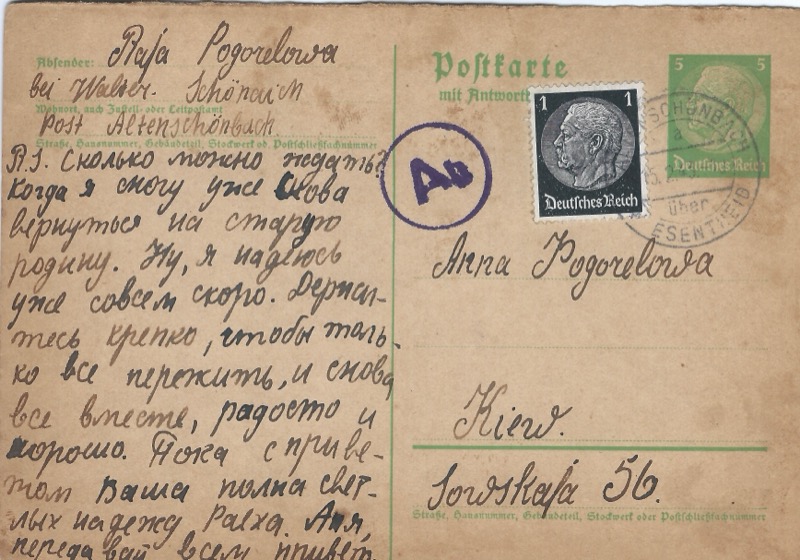 Absender: Raja Pogorelowa
bei Walter. Schönaich
Wohnort, auch Zustell- oder Leitpostamt
Post Altenschönbach
Straße, Hausnummer, Gebäudeteil, Stockwerk od. Postschließfachnummer
P.S. Сколько можно ждать?
Когда я смогу уже снова
вернуться на старую
родину. Ну, я надеюсь
уже совсем скоро. Держи-
тесь крепко, чтобы толь-
ко все пережить, и снова
все вместе, радосто и
хорошо. Пока с приве-
том Ваша полна свет-
лых надежд Раеха. Аня,
передавай всем привет
Postkarte
mit Antwort
5 5
Deutsches Reich
1 1
Deutsches Reich
SCHÖNBACH
a
über
ESENTHEID
Ab
Anna Pogorelowa
Kiew.
Sowskaja 56.
Straße, Hausnummer, Gebäudeteil, Stockwerk oder Postschließfachnummer